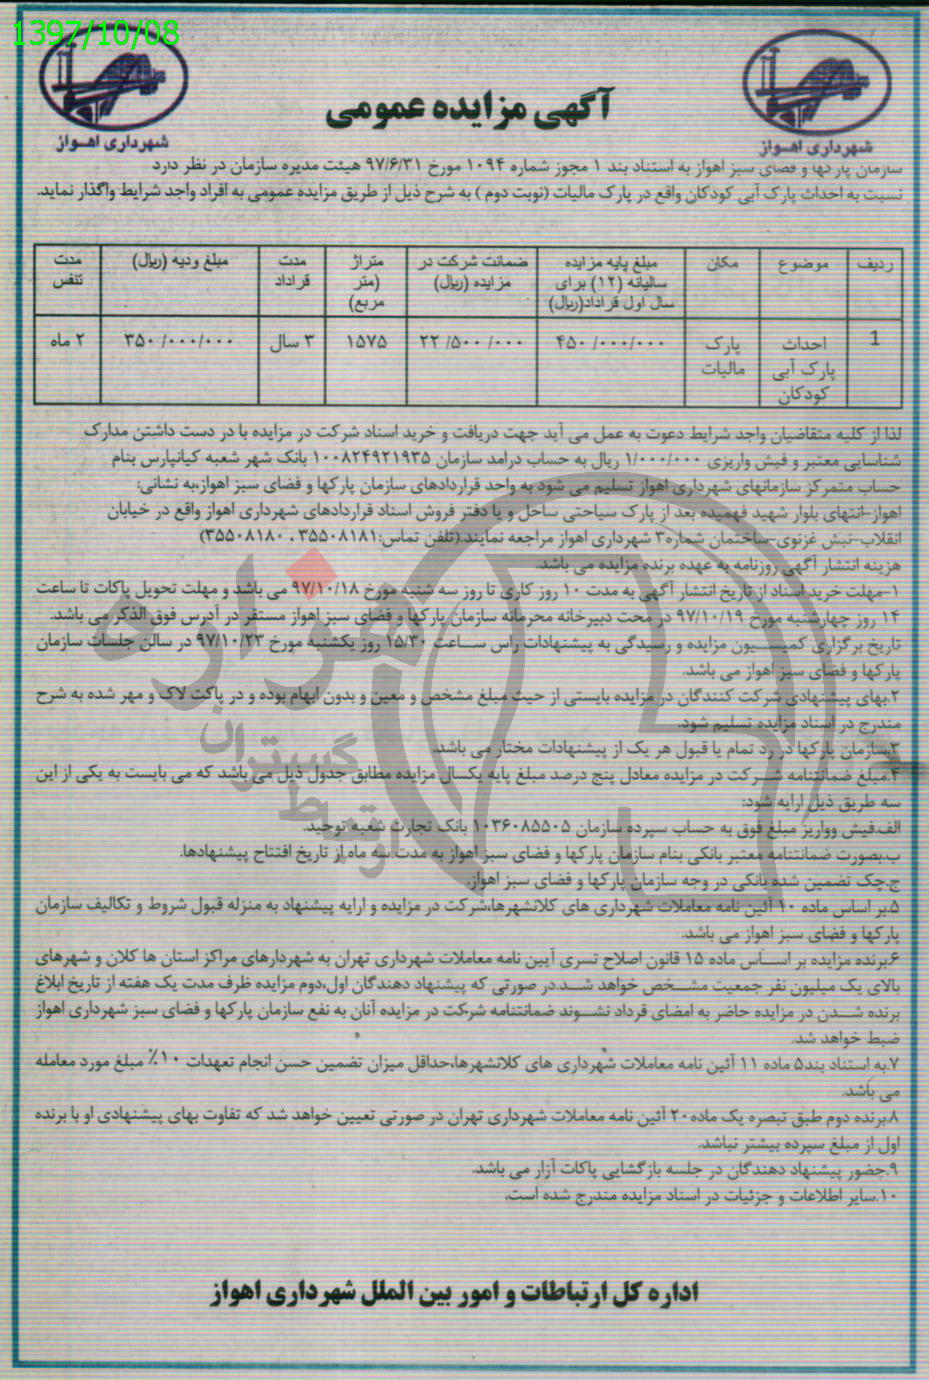 1397/10/08
شهرداری اهـواز
شهرداری اهـواز
آگهی مزایده عمومی
سازمان پارکها و فضای سبز اهواز به استناد بند ۱ مجوز شماره ۱۰۹۴ مورخ ۹۷/۶/۳۱ هیئت مدیره سازمان در نظر دارد
نسبت به احداث پارک آبی کودکان واقع در پارک مالیات (نوبت دوم ) به شرح ذیل از طریق مزایده عمومی به افراد واجد شرایط واگذار نماید.
ردیف موضوع مکان مبلغ پایه مزایده سالیانه (۱۲) برای سال اول قراداد(ریال) ضمانت شرکت در مزایده (ریال) متراژ (متر مربع) مدت قراداد مبلغ ودیه (ریال) مدت تنفس
1 احداث پارک آبی کودکان پارک مالیات ۴۵۰ /۰۰۰/۰۰۰ ۲۲ /۵۰۰ /۰۰۰ ۱۵۷۵ ۳ سال ۳۵۰ /۰۰۰/۰۰۰ ۲ ماه
لذا از کلیه متقاضیان واجد شرایط دعوت به عمل می آید جهت دریافت و خرید اسناد شرکت در مزایده با در دست داشتن مدارک
شناسایی معتبر و فیش واریزی ۱/۰۰۰/۰۰۰ ریال به حساب درامد سازمان ۱۰۰۸۲۴۹۲۱۹۳۵ بانک شهر شعبه کیانپارس بنام
حساب متمرکز سازمانهای شهرداری اهواز تسلیم می شود به واحد قراردادهای سازمان پارکها و فضای سبز اهواز،به نشانی:
اهواز-انتهای بلوار شهید فهمیده بعد از پارک سیاحتی ساحل و یا دفتر فروش اسناد قراردادهای شهرداری اهواز واقع در خیابان
انقلاب-نبش غزنوی-ساختمان شماره۳ شهرداری اهواز مراجعه نمایند.(تلفن تماس:۳۵۵۰۸۱۸۱ ، ۳۵۵۰۸۱۸۰)
هزینه انتشار آگهی روزنامه به عهده برنده مزایده می باشد.
۱-مهلت خرید اسناد از تاریخ انتشار آگهی به مدت ۱۰ روز کاری تا روز سه شنبه مورخ ۹۷/۱۰/۱۸ می باشد و مهلت تحویل پاکات تا ساعت
۱۴ روز چهارشنبه مورخ ۹۷/۱۰/۱۹ در محت دبیرخانه محرمانه سازمان پارکها و فضای سبز اهواز مستقر در آدرس فوق الذکر می باشد.
تاریخ برگزاری کمیسـیون مزایده و رسیدگی به پیشنهادات راس ساعت ۱۵/۳۰ روز یکشنبه مورخ ۹۷/۱۰/۲۳ در سالن جلسات سازمان
پارکها و فضای سبز اهواز می باشد.
۲.بهای پیشنهادی شرکت کنندگان در مزایده بایستی از حیث مبلغ مشخص و معین و بدون ابهام بوده و در پاکت لاک و مهر شده به شرح
مندرج در اسناد مزایده تسلیم شود.
۳.سازمان پارکها در رد تمام یا قبول هر یک از پیشنهادات مختار می باشد.
۴.مبلغ ضمانتنامه شـرکت در مزایده معادل پنج درصد مبلغ پایه یکسال مزایده مطابق جدول ذیل می باشد که می بایست به یکی از این
سه طریق ذیل ارایه شود:
الف.فیش وواریز مبلغ فوق به حساب سپرده سازمان ۱۰۳۶۰۸۵۵۰۵ بانک تجارت شعبه توحید.
ب.بصورت ضمانتنامه معتبر بانکی بنام سازمان پارکها و فضای سبز اهواز به مدت سه ماه از تاریخ افتتاح پیشنهادها.
ج.چک تضمین شده بانکی در وجه سازمان پارکها و فضای سبز اهواز.
۵.بر اساس ماده ۱۰ آئین نامه معاملات شهرداری های کلانشهرها،شرکت در مزایده و ارایه پیشنهاد به منزله قبول شروط و تکالیف سازمان
پارکها و فضای سبز اهواز می باشد.
۶.برنده مزایده بر اسـاس ماده ۱۵ قانون اصلاح تسری آیین نامه معاملات شهرداری تهران به شهردارهای مراکز استان ها کلان و شهرهای
بالای یک میلیون نفر جمعیت مشـخص خواهد شـد.در صورتی که پیشنهاد دهندگان اول،دوم مزایده ظرف مدت یک هفته از تاریخ ابلاغ
برنده شـدن در مزایده حاضر به امضای قرداد نشـوند ضمانتنامه شرکت در مزایده آنان به نفع سازمان پارکها و فضای سبز شهرداری اهواز
ضبط خواهد شد.
۷.به استناد بند۵ ماده ۱۱ آئین نامه معاملات شهرداری های کلانشهرها،حداقل میزان تضمین حسن انجام تعهدات ۱۰٪ مبلغ مورد معامله
می باشد.
۸.برنده دوم طبق تبصره یک ماده۲۰ آئین نامه معاملات شهرداری تهران در صورتی تعیین خواهد شد که تفاوت بهای پیشنهادی او با برنده
اول از مبلغ سپرده بیشتر نباشد.
۹.حضور پیشنهاد دهندگان در جلسه بازگشایی پاکات آزار می باشد.
۱۰.سایر اطلاعات و جزئیات در اسناد مزایده مندرج شده است.
اداره کل ارتباطات و امور بین الملل شهرداری اهواز